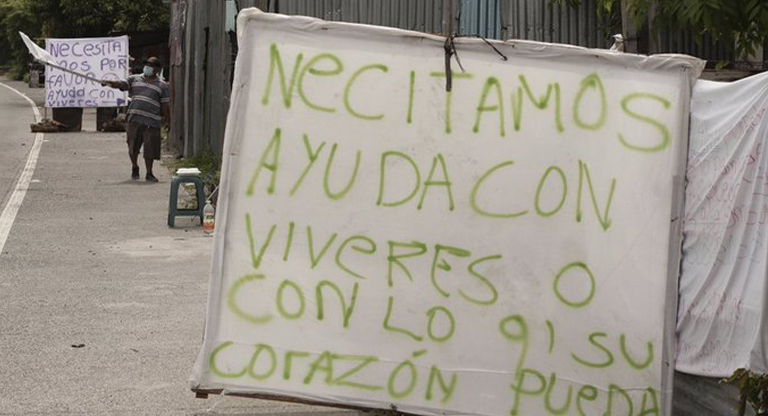 NeceSITA
mos POR
FAVOR
Ayuda con
viveres
NeCITAMOS
AYUDA CON
VIVeRES O
CON LO q' SU
COrAZÓN PUEDA